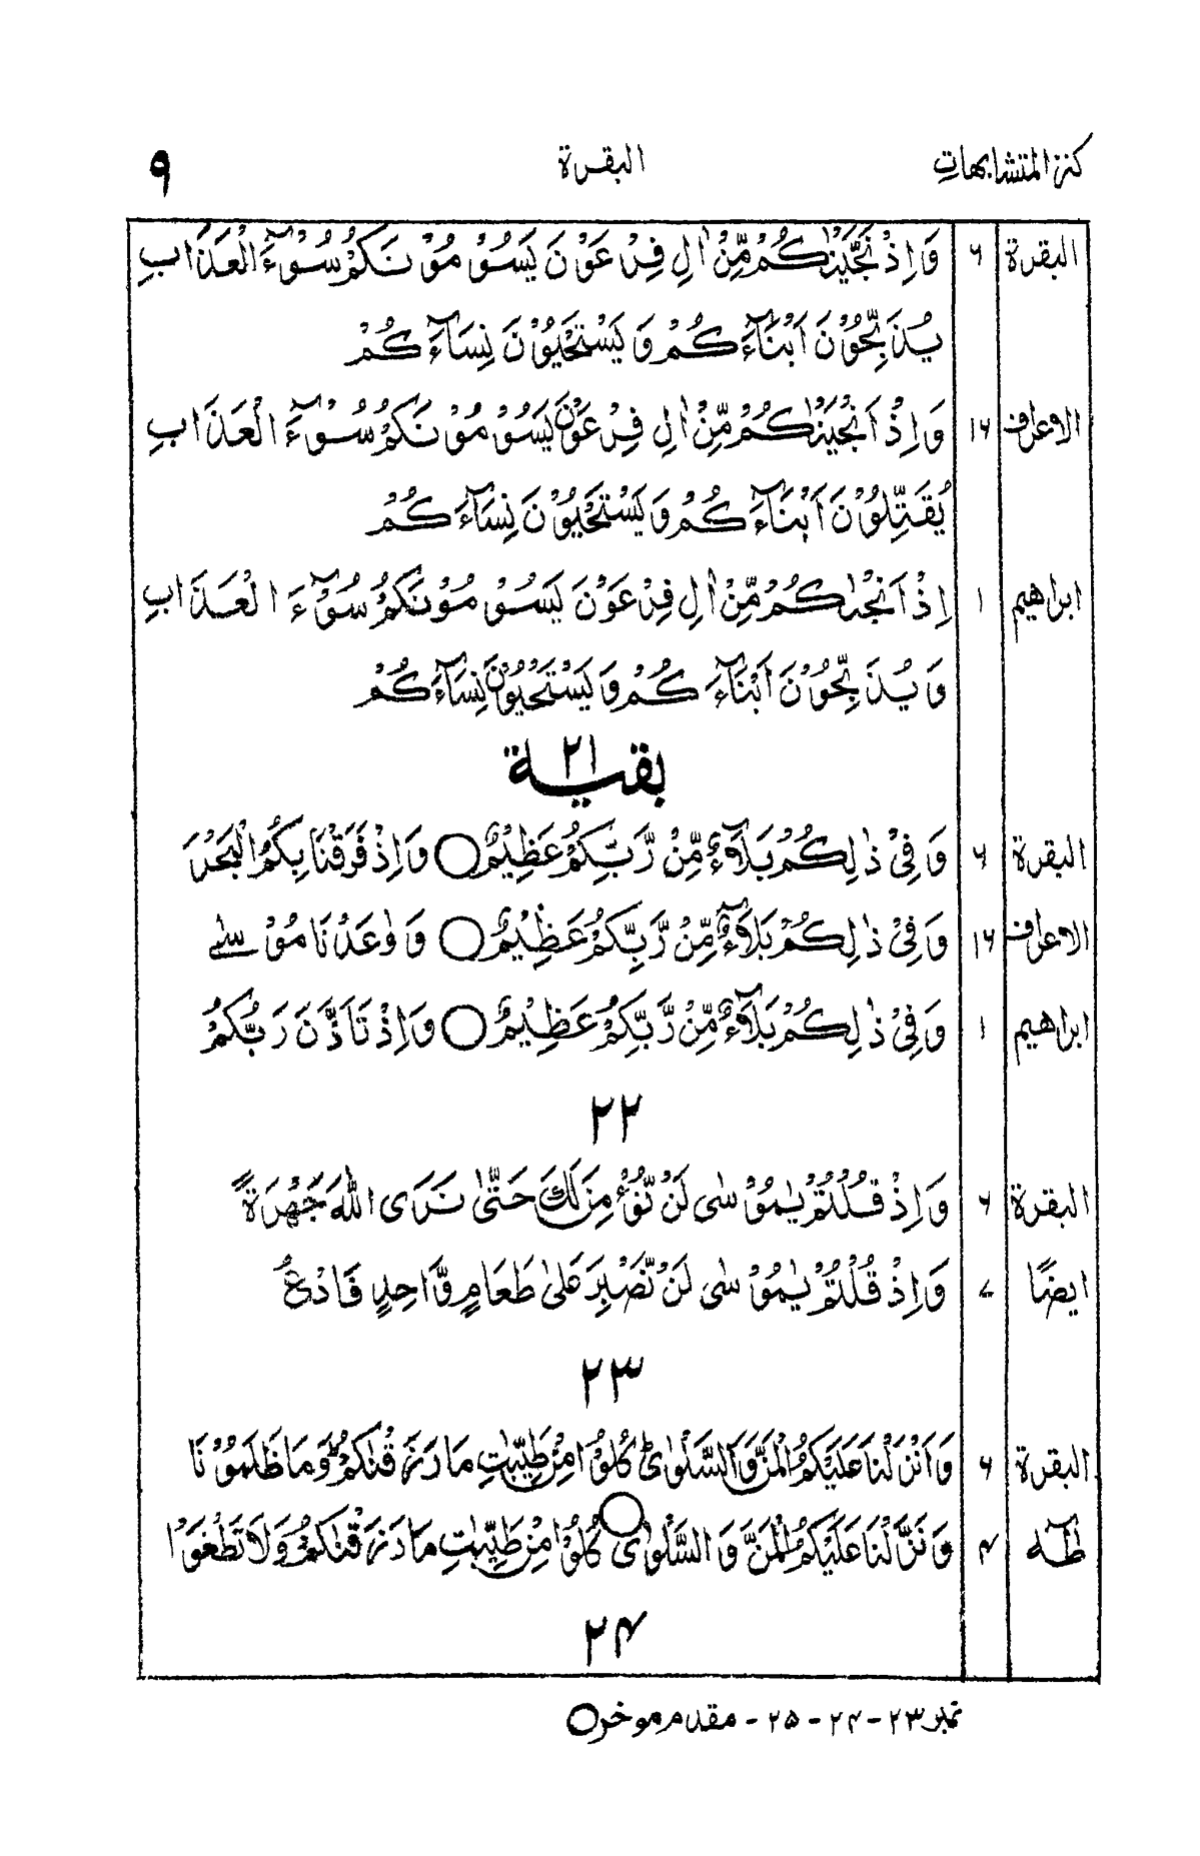 كنز المتشابهات البقرة ٩
البقرة ۶ وَاِذْ نَجَّيْنٰكُمْ مِّنْ اٰلِ فِرْعَوْنَ يَسُوْمُوْنَكُمْ سُوْٓءَ الْعَذَابِ
يُذَبِّحُوْنَ اَبْنَآءَكُمْ وَيَسْتَحْيُوْنَ نِسَآءَكُمْ
الاعراف ۱۶ وَاِذْ اَنْجَيْنٰكُمْ مِّنْ اٰلِ فِرْعَوْنَ يَسُوْمُوْنَكُمْ سُوْٓءَ الْعَذَابِ
يُقَتِّلُوْنَ اَبْنَآءَكُمْ وَيَسْتَحْيُوْنَ نِسَآءَكُمْ
ابراهيم ۱ اِذْ اَنْجٰىكُمْ مِّنْ اٰلِ فِرْعَوْنَ يَسُوْمُوْنَكُمْ سُوْٓءَ الْعَذَابِ
وَيُذَبِّحُوْنَ اَبْنَآءَكُمْ وَيَسْتَحْيُوْنَ نِسَآءَكُمْ
بقية ۲۱
البقرة ۶ وَفِيْ ذٰلِكُمْ بَلَآءٌ مِّنْ رَّبِّكُمْ عَظِيْمٌ ○ وَاِذْ فَرَقْنَا بِكُمُ الْبَحْرَ
الاعراف ۱۶ وَفِيْ ذٰلِكُمْ بَلَآءٌ مِّنْ رَّبِّكُمْ عَظِيْمٌ ○ وَوٰعَدْنَا مُوْسٰے
ابراهيم ۱ وَفِيْ ذٰلِكُمْ بَلَآءٌ مِّنْ رَّبِّكُمْ عَظِيْمٌ ○ وَاِذْ تَاَذَّنَ رَبُّكُمْ
۲۲
البقرة ۶ وَاِذْ قُلْتُمْ يٰمُوْسٰى لَنْ نُّؤْمِنَ لَكَ حَتّٰى نَرَى اللّٰهَ جَهْرَةً
ايضًا ۷ وَاِذْ قُلْتُمْ يٰمُوْسٰى لَنْ نَّصْبِرَ عَلٰى طَعَامٍ وَّاحِدٍ فَادْعُ
۲۳
البقرة ۶ وَاَنْزَلْنَا عَلَيْكُمُ الْمَنَّ وَالسَّلْوٰىؕ كُلُوْا مِنْ طَيِّبٰتِ مَا رَزَقْنٰكُمْؕ وَمَا ظَلَمُوْنَا
طٰهٰ ۴ وَنَزَّلْنَا عَلَيْكُمُ الْمَنَّ وَالسَّلْوٰى ○ كُلُوْا مِنْ طَيِّبٰتِ مَا رَزَقْنٰكُمْ وَلَا تَطْغَوْا
۲۴
نمبر ۲۳ - ۲۴ - ۲۵ - مقدم موخر ○